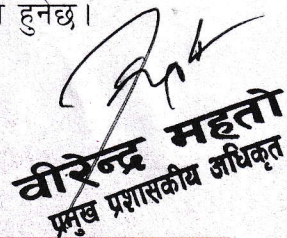 हुनेछ।
वीरेन्द्र महतो
प्रमुख प्रशासकीय अधिकृत